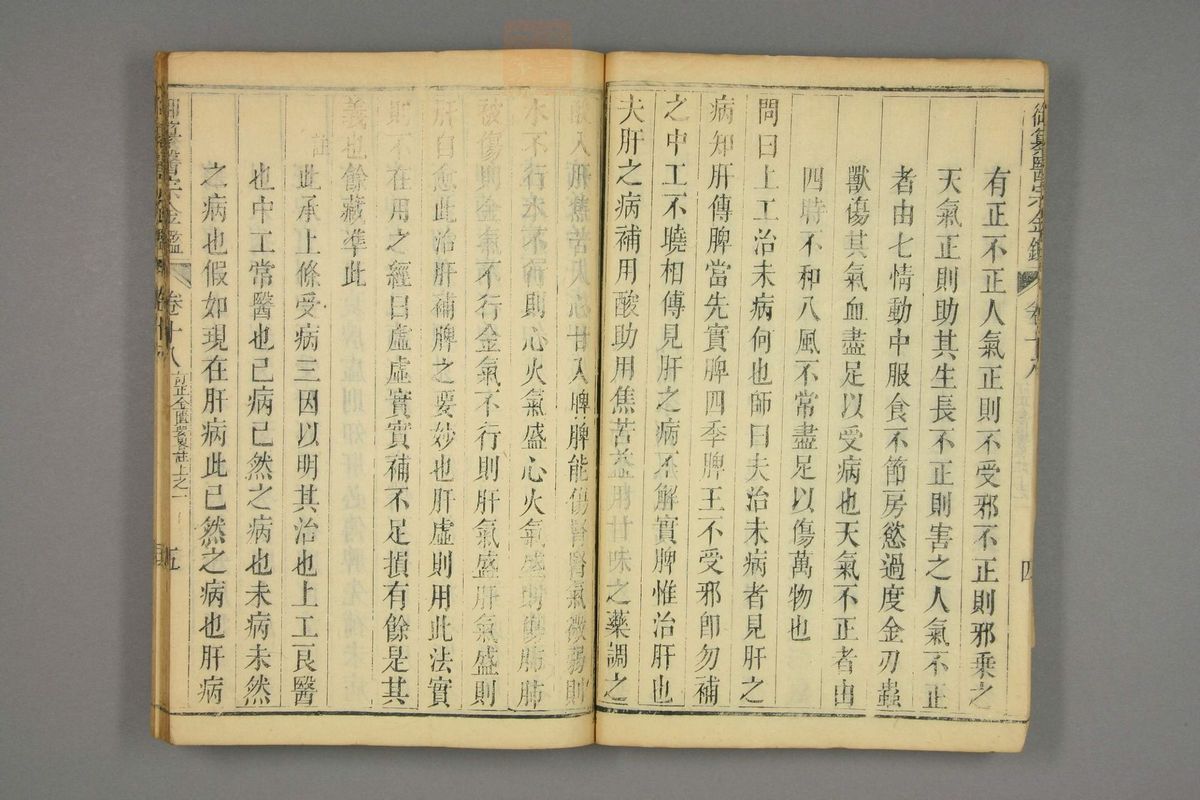 御纂醫宗金鑑 卷十八 四
有正不正人氣正則不受邪不正則邪乘之
天氣正則助其生長不正則害之人氣不正
者由七情動中服食不節房慾過度金刃蟲
獸傷其氣血盡足以受病也天氣不正者由
四時不和八風不常盡足以傷萬物也
問曰上工治未病何也師曰夫治未病者見肝之
病知肝傳脾當先實脾四季脾王不受邪卽勿補
之中工不曉相傳見肝之病不解實脾惟治肝也
夫肝之病補用酸助用焦苦益用甘味之藥調之
酸入肝焦苦入心甘入脾脾能傷腎腎氣微弱則
水不行水不行則心火氣盛心火氣盛則傷肺肺
被傷則金氣不行金氣不行則肝氣盛肝氣盛則
肝自愈此治肝補脾之要妙也肝虛則用此法實
則不在用之經曰虛虛實實補不足損有餘是其
義也餘藏準此
註
此承上條受病三因以明其治也上工良醫
也中工常醫也已病已然之病也未病未然
之病也假如現在肝病此已然之病也肝病
御纂醫宗金鑑 卷十八 訂正金匱要畧註上之一 五